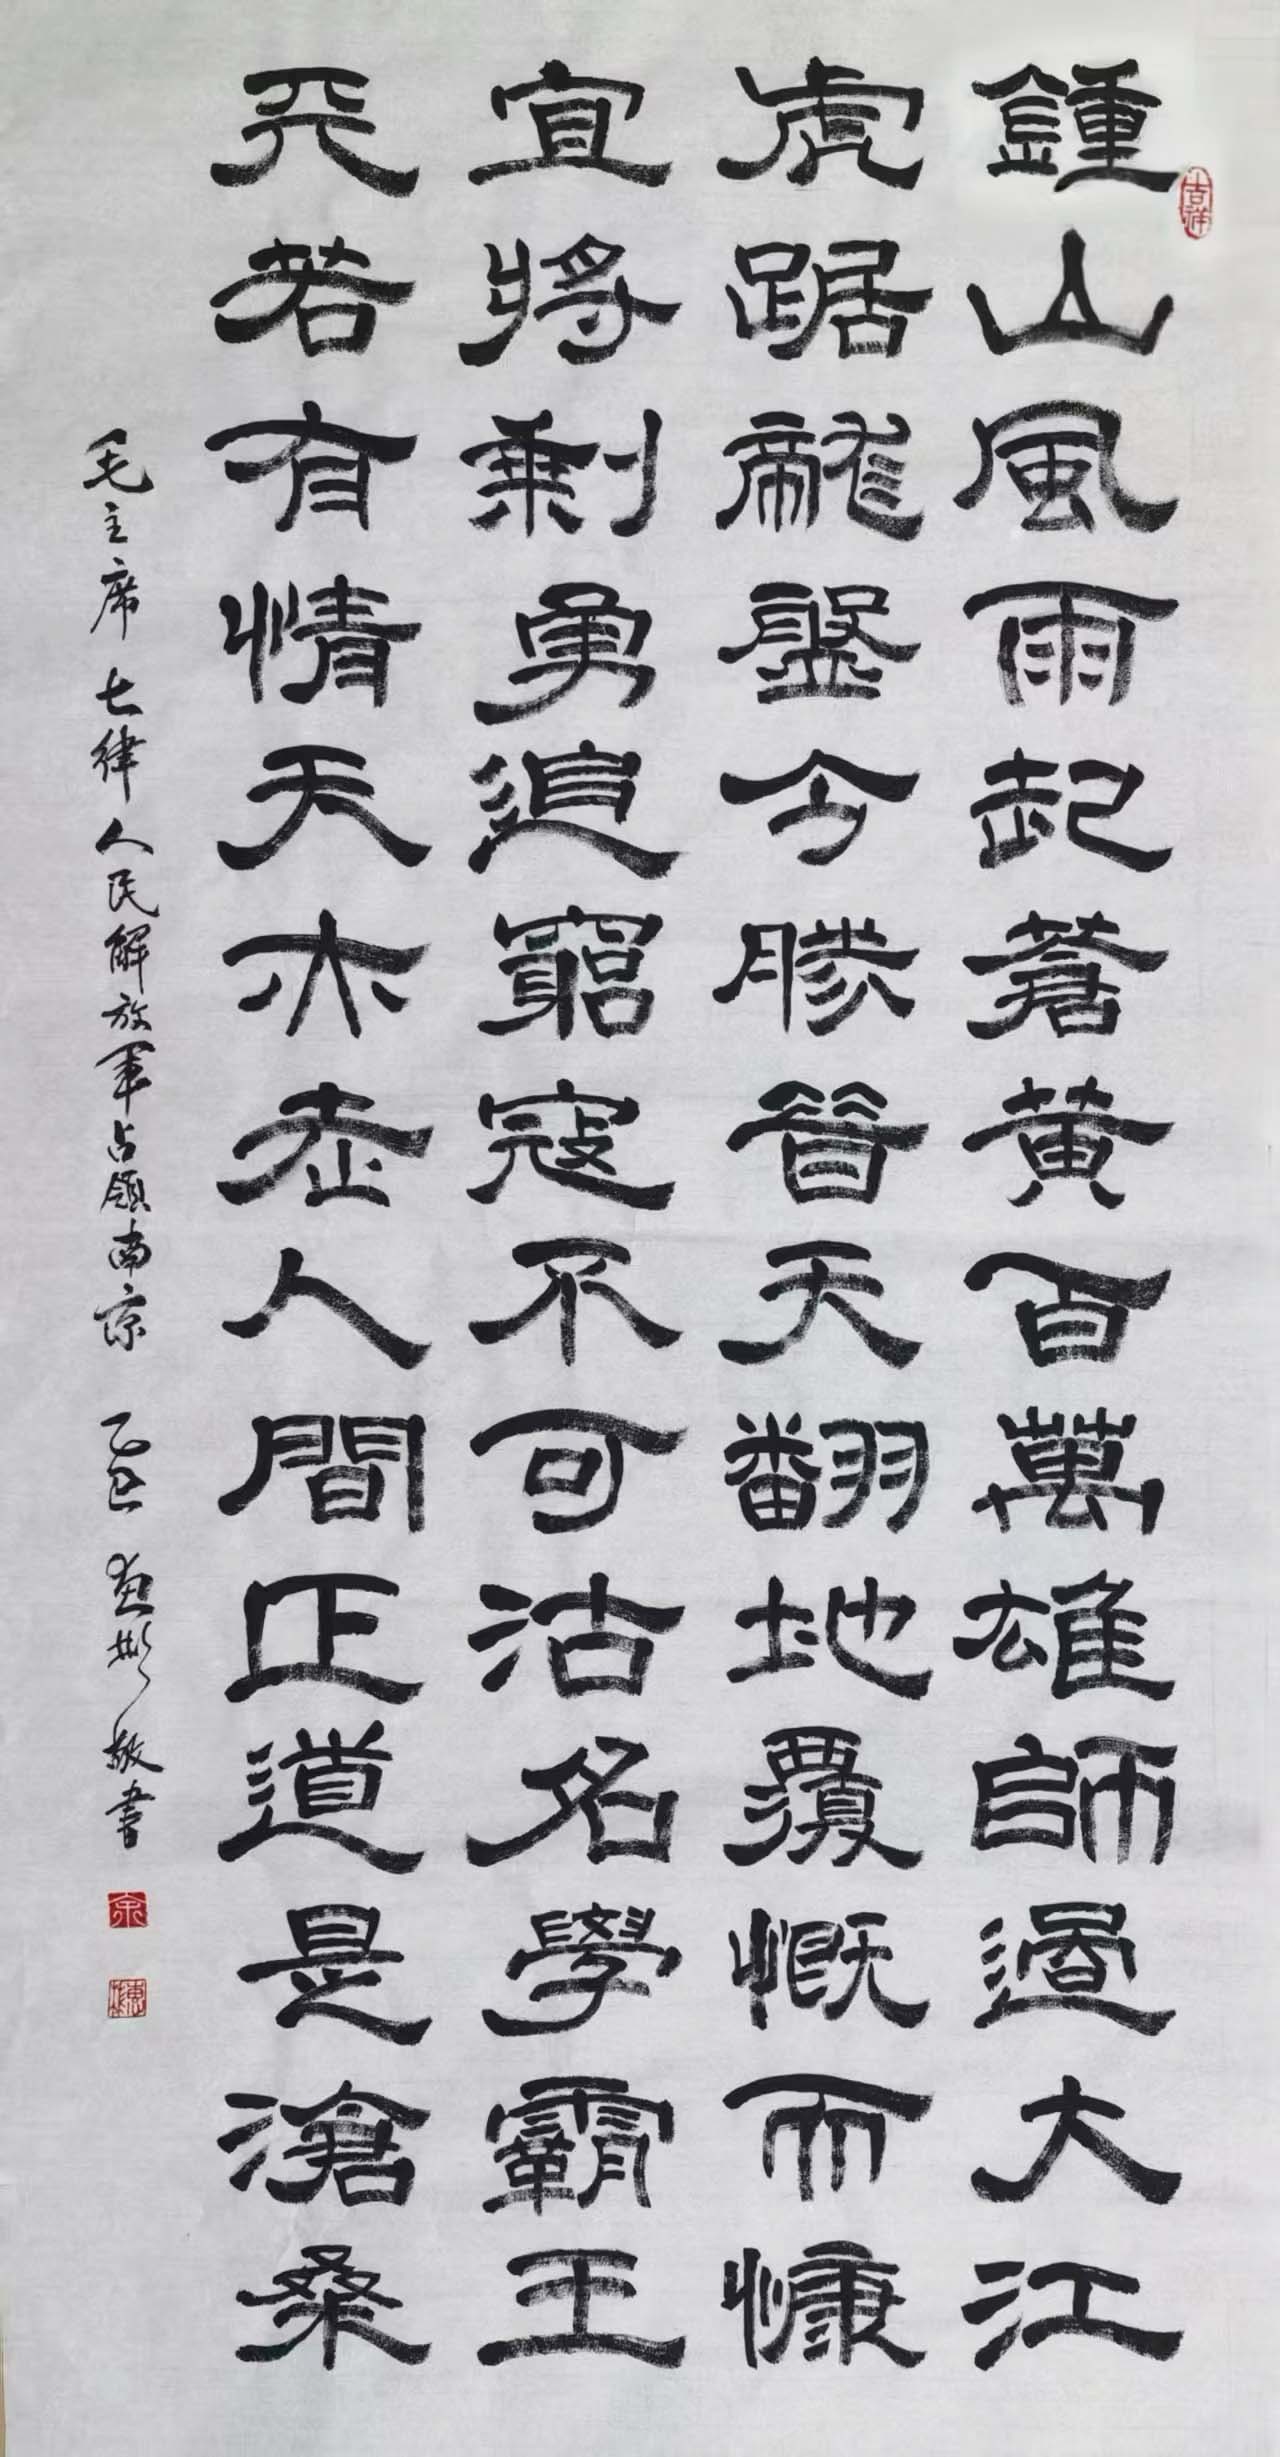 鍾山風雨起蒼黃百萬雄師過大江
虎踞龍盤今勝昔天翻地覆慨而慷
宜將剩勇追窮寇不可沽名學霸王
天若有情天亦老人間正道是滄桑
毛主席七律人民解放軍占領南京 乙巳 惠彬敬書
吉祥
余